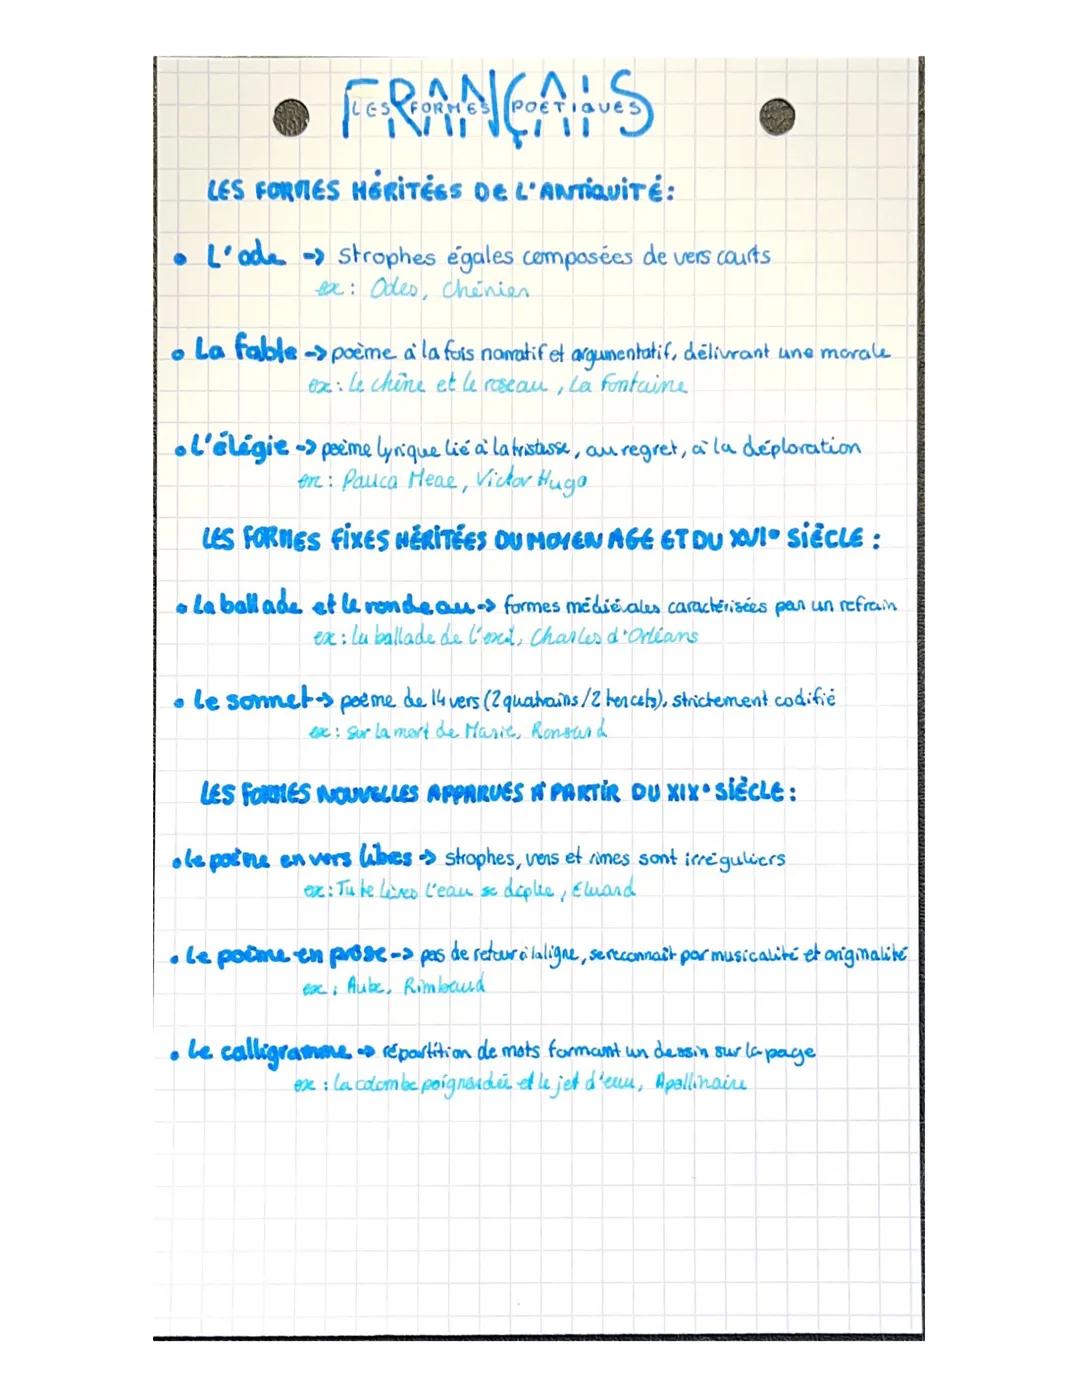 FRANÇAIS
LES FORMES POETIQUES
LES FORMES HÉRITÉES DE L'ANTIQUITÉ:
• L'ode -> strophes égales composées de vers courts
ex: Odes, Chénier
• La fable -> poème à la fois narratif et argumentatif, délivrant une morale
ex: Le chêne et le roseau, La Fontaine
• L'élégie -> poème lyrique lié à la tristesse, au regret, à la déploration
ex: Pauca Meae, Victor Hugo
LES FORMES FIXES HÉRITÉES DU MOYEN AGE ET DU XVI° SIÈCLE:
• La ballade et le rondeau -> formes médiévales caractérisées par un refrain
ex: la ballade de l'exil, Charles d'Orléans
• Le sonnet -> poème de 14 vers (2 quatrains / 2 tercets), strictement codifié
ex: Sur la mort de Marie, Ronsard
LES FORMES NOUVELLES APPARUES A PARTIR DU XIX° SIÈCLE:
• Le poème en vers libres -> strophes, vers et rimes sont irréguliers
ex: Tu te lèves l'eau se déplie, Eluard
• Le poème en prose -> pas de retour à la ligne, se reconnait par musicalité et originalité
ex: Aube, Rimbaud
• Le calligramme -> répartition de mots formant un dessin sur la page
ex: La colombe poignardée et le jet d'eau, Apollinaire